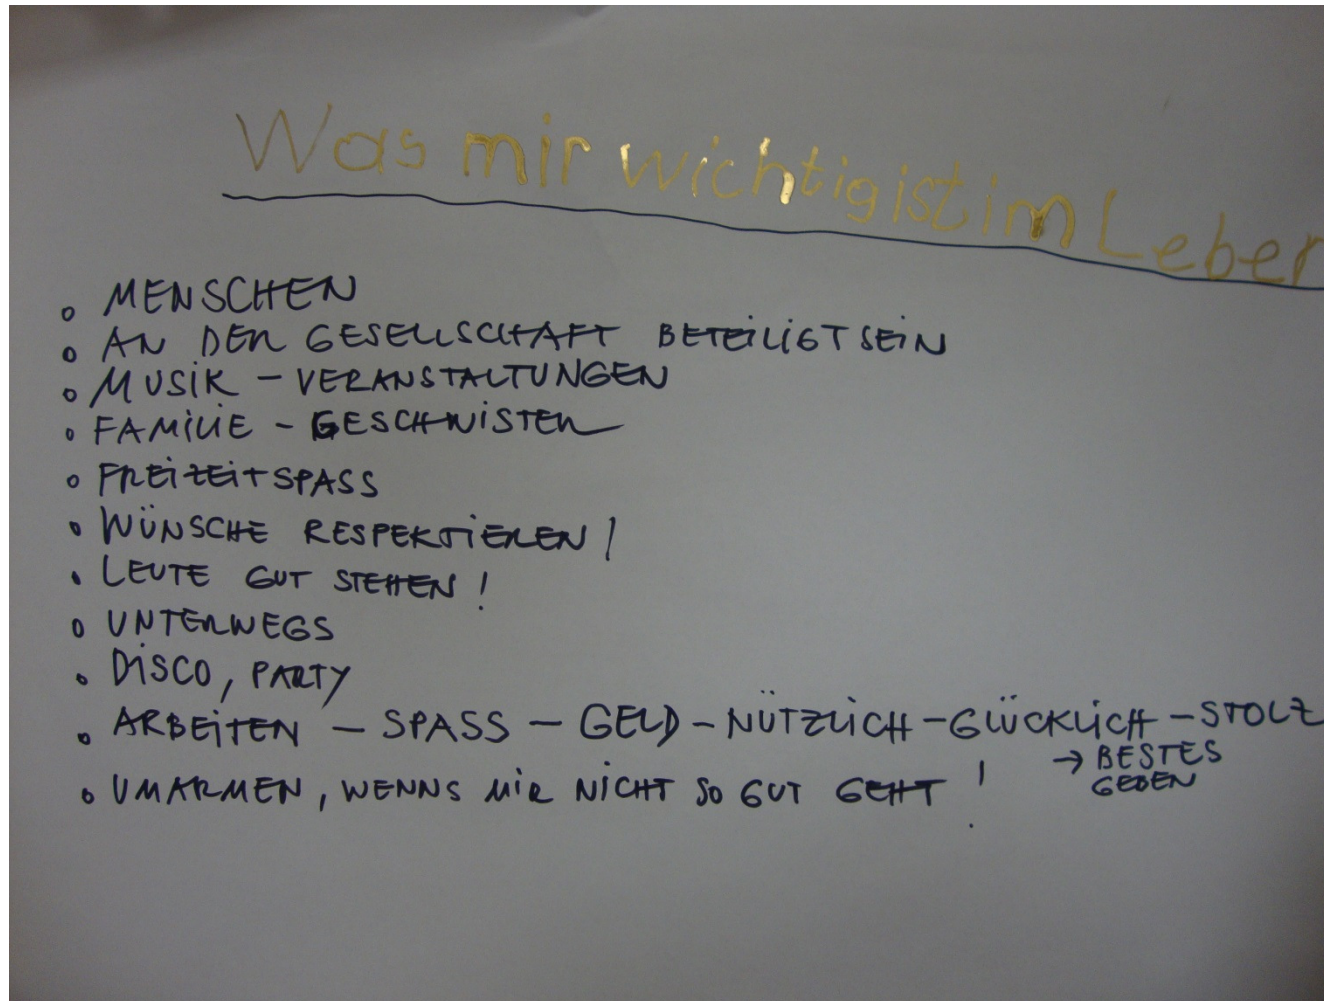 Was mir wichtig ist im Leben
• MENSCHEN
• AN DER GESELLSCHAFT BETEILIGT SEIN
• MUSIK - VERANSTALTUNGEN
• FAMILIE - GESCHWISTER
• FREIZEITSPASS
• WÜNSCHE RESPEKTIEREN!
• LEUTE GUT STEHEN!
• UNTERWEGS
• DISCO, PARTY
• ARBEITEN - SPASS - GELD - NÜTZLICH - GLÜCKLICH - STOLZ
→ BESTES
GEBEN
• UMARMEN, WENNS MIR NICHT SO GUT GEHT!